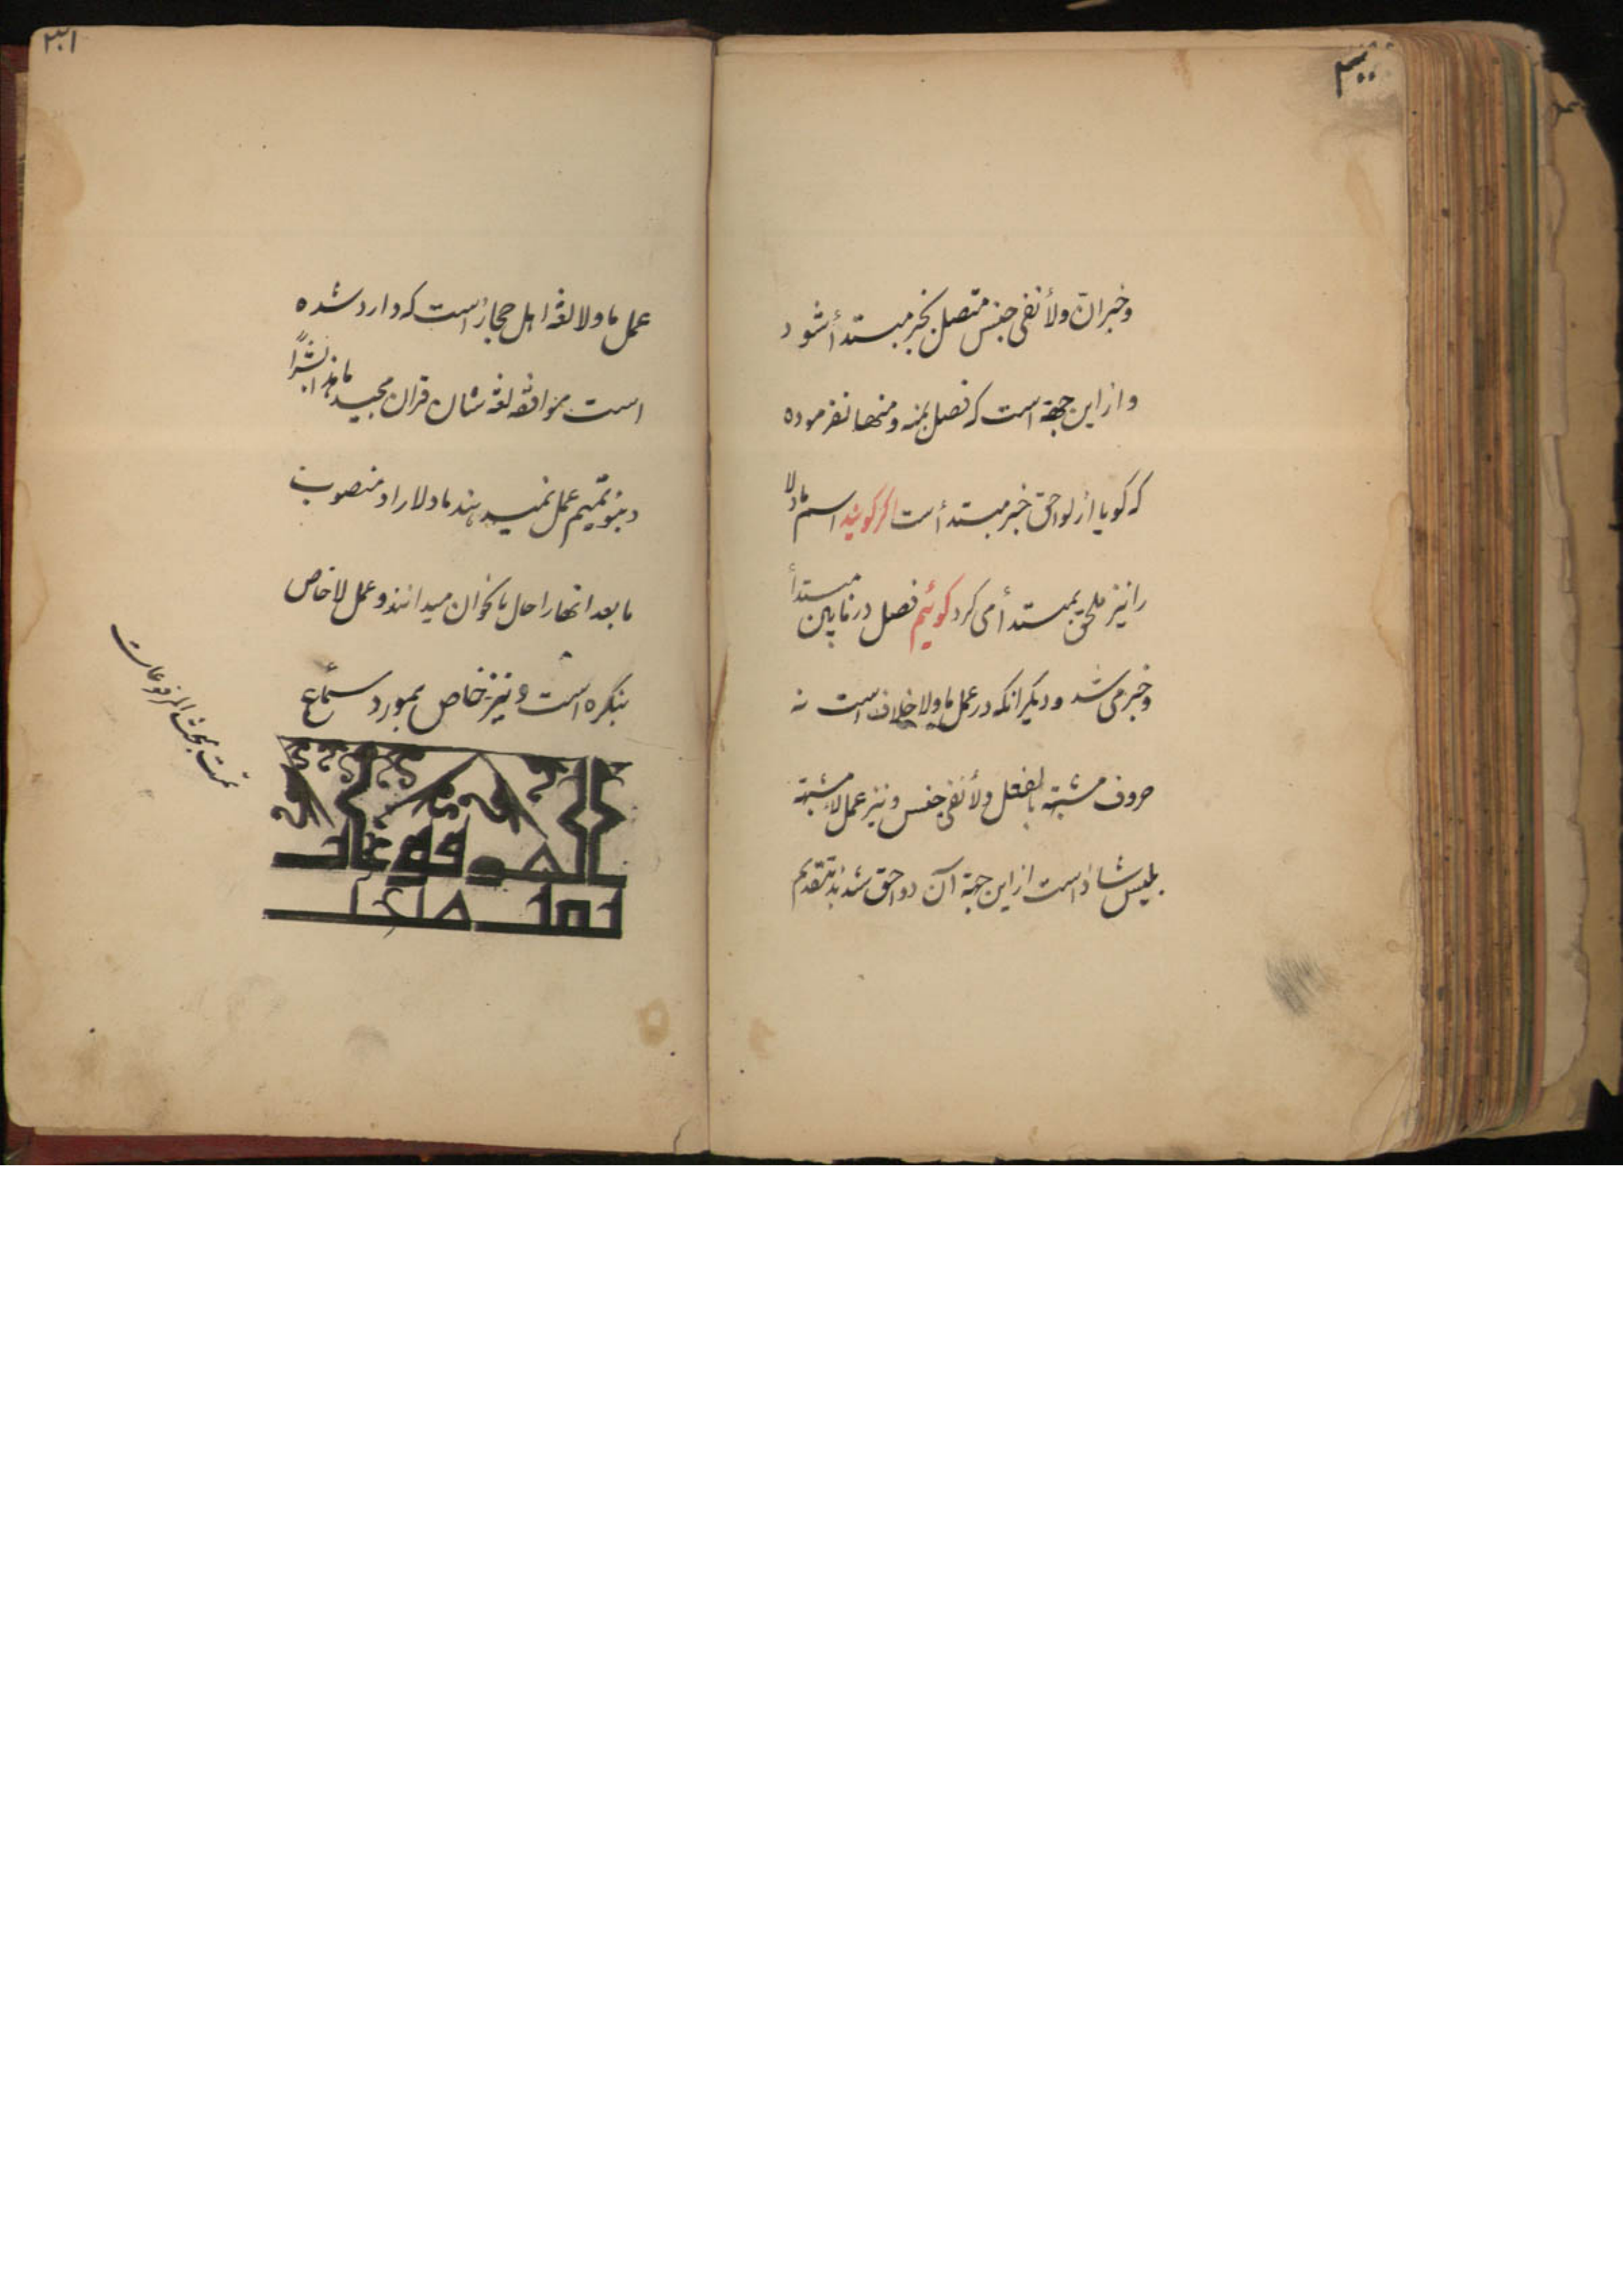 ۳۰۰
وخبر انّ ولأ نفی جنس متصل بخبر مبتدأ شود
و از این جهة است که فصل بمنه و منها نفرموده
که گویا از لواحق خبر مبتدأ است اگر گویند اسم ما ولا
را نیز ملحق بمبتدأ می کرد گوئیم فصل در مابین مبتدأ
و خبر می شد و دیگر انکه در عمل ما ولا خلاف است نه
حروف مشبهة بالفعل ولأ نفی جنس و نیز عمل لاء مشبهة
بلیس شاذ است از این جهة آن دو احق شدند بتقدیم
۳۰۱
عمل ما ولا لغة اهل حجاز است که وارد شده
است موافقه لغة شان قران مجید ما هذا بشراً
و بنو تمیم عمل نمیدهند ما ولا را و منصوب
ما بعد انها را حال یا نحو ان میدانند و عمل لا خاص
بنکره است و نیز خاص بمورد سماع
تمت بحث المرفوعات
المرفوعات